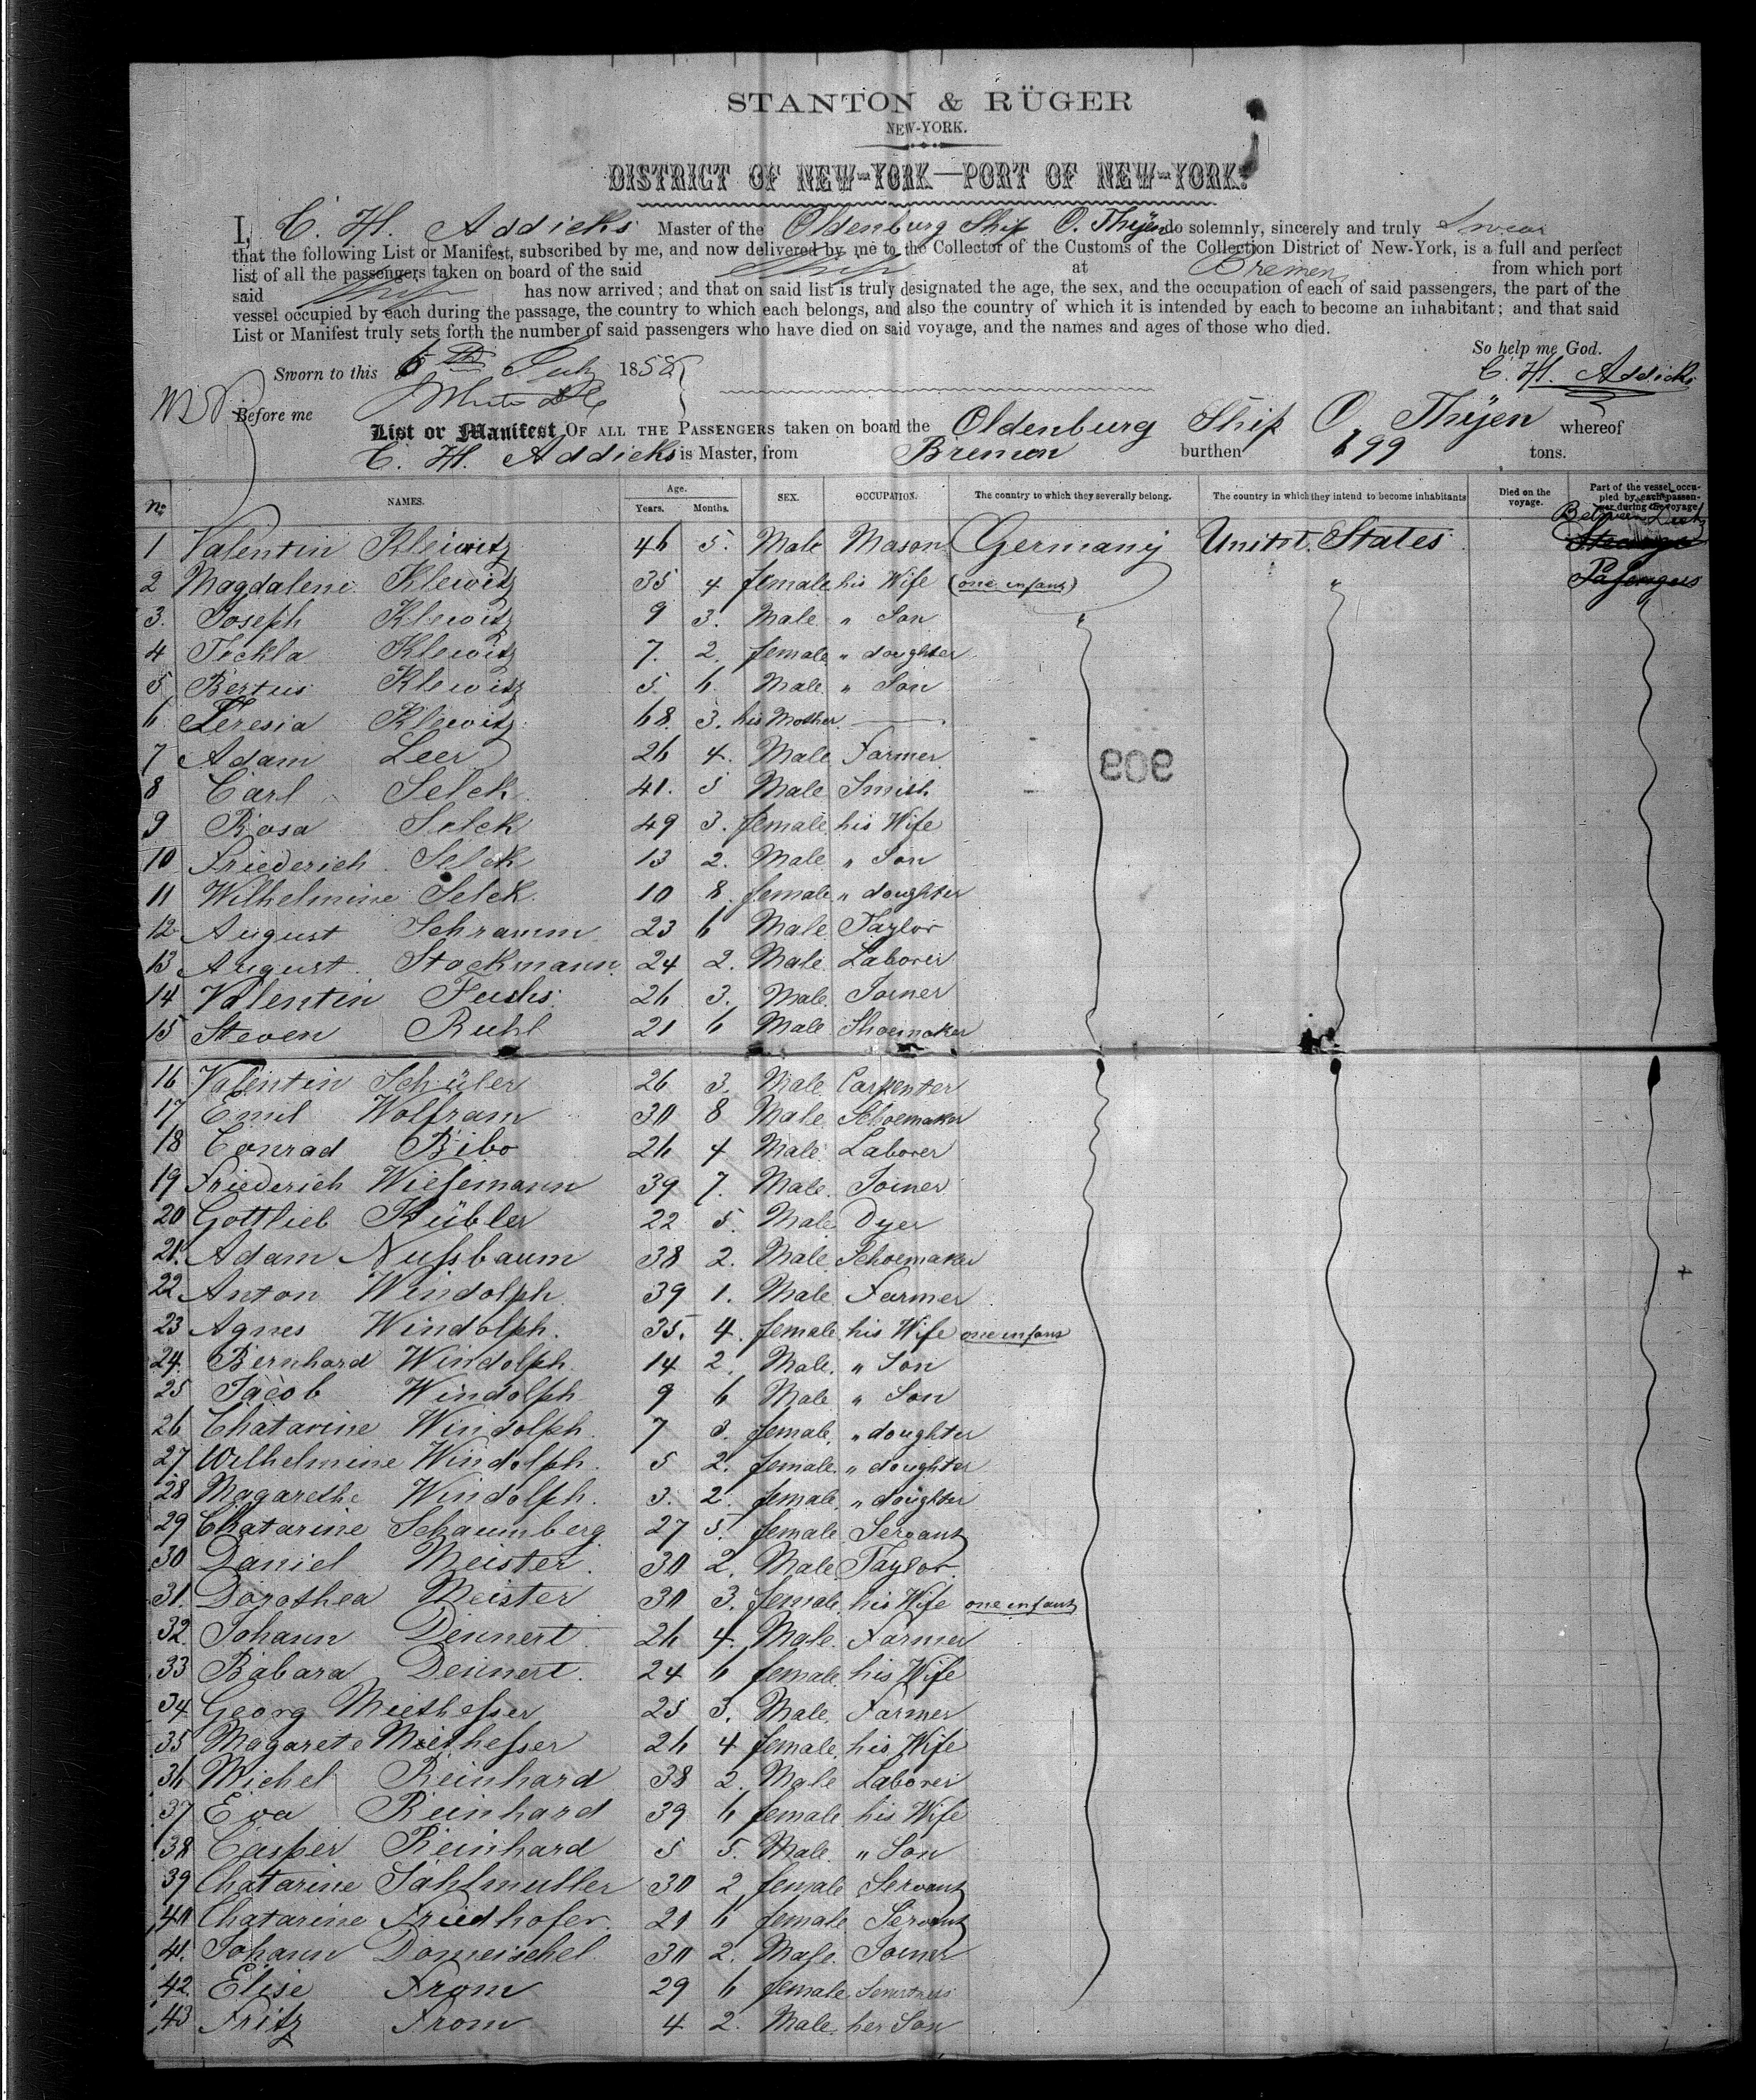 STANTON & RÜGER
NEW-YORK.
DISTRICT OF NEW-YORK—PORT OF NEW-YORK.
I, C. H. Addicks Master of the Oldenburg Ship O. Thyen do solemnly, sincerely and truly Swear
that the following List or Manifest, subscribed by me, and now delivered by me to the Collector of the Customs of the Collection District of New-York, is a full and perfect
list of all the passengers taken on board of the said Ship at Bremen from which port
said Ship has now arrived; and that on said list is truly designated the age, the sex, and the occupation of each of said passengers, the part of the
vessel occupied by each during the passage, the country to which each belongs, and also the country of which it is intended by each to become an inhabitant; and that said
List or Manifest truly sets forth the number of said passengers who have died on said voyage, and the names and ages of those who died.
So help me God.
Sworn to this 6th July 1858 C. H. Addicks
Before me
List or Manifest OF ALL THE PASSENGERS taken on board the Oldenburg Ship O. Thyen whereof
C. H. Addicks is Master, from Bremen burthen 699 tons.
No NAMES. Age. Years. Months. SEX. OCCUPATION. The country to which they severally belong. The country in which they intend to become inhabitants Died on the voyage. Part of the vessel occupied by each passenger during the voyage
1 Valentin Klewitz 46 5. Male Mason Germany Unitet States Steerage
2 Magdalene Klewitz 35 4 female his Wife (one infant) " Passengers
3. Joseph Klewitz 9 3. Male " Son "
4 Teckla Klewitz 7. 2. female " doughter
5 Bertus Klewitz 5. 6. Male " Son
6 Teresia Klewitz 68. 3. his Mother —
7 Adam Leer 26 4. Male Farmer
8 Carl Selck 41. 5 Male Smith
9 Rosa Selck 49 3. female his Wife
10 Friederich Selck 13 2. Male " Son
11 Wilhelmine Selck 10 8. female " doughter
12 August Schramm 23 6 Male Taylor
13 August Stockmann 24 2. Male Laborer
14 Valentin Fuchs 26 3. Male Joiner
15 Steven Ruhl 21 6 Male Shoemaker
16 Valentin Schüler 26 3. Male Carpenter
17 Emil Wolfram 30 8 Male Schoemaker
18 Conrad Bibo 26 4 Male Laborer
19 Friederich Wiesemann 39 7. Male Joiner
20 Gottlieb Kübler 22 5. Male Dyer
21. Adam Nussbaum 38 2. Male Schoemaker
22 Anton Windolph 39 1. Male Farmer
23 Agnes Windolph. 35. 4. female his Wife one infant
24. Bernhard Windolph. 14 2. Male " Son
25 Jacob Windolph 9 6 Male " Son
26 Chatarine Windolph. 7 3. female " doughter
27 Wilhelmine Windolph. 5 2. female " doughter
28 Magarethe Windolph. 3. 2. female " doughter
29 Chatarine Schaumberg 27 5. female Servant
30 Daniel Meister. 30 2. Male Taylor.
31. Dorothea Meister 30 3. female his Wife one infant
32. Johann Deinert 26 4. Male Farmer
33 Babara Deinert. 24 6 female his Wife
34 Georg Methesser 25 3. Male Farmer
35 Magarete Methesser 26 4 female his Wife
36 Michel Reinhard 38 2. Male Laborer
37 Eva Reinhard 39 6 female his Wife
38 Casper Reinhard 5 5. Male " Son
39 Chatarine Sahlmuller 30 2 female Servant
40 Chatarine Friedhofer. 21 6 female Servant
41. Johann Domeischel 30 2. Male Joiner
42. Elise From 29 6 female Semstress
43 Fritz From 4 2. Male her Son